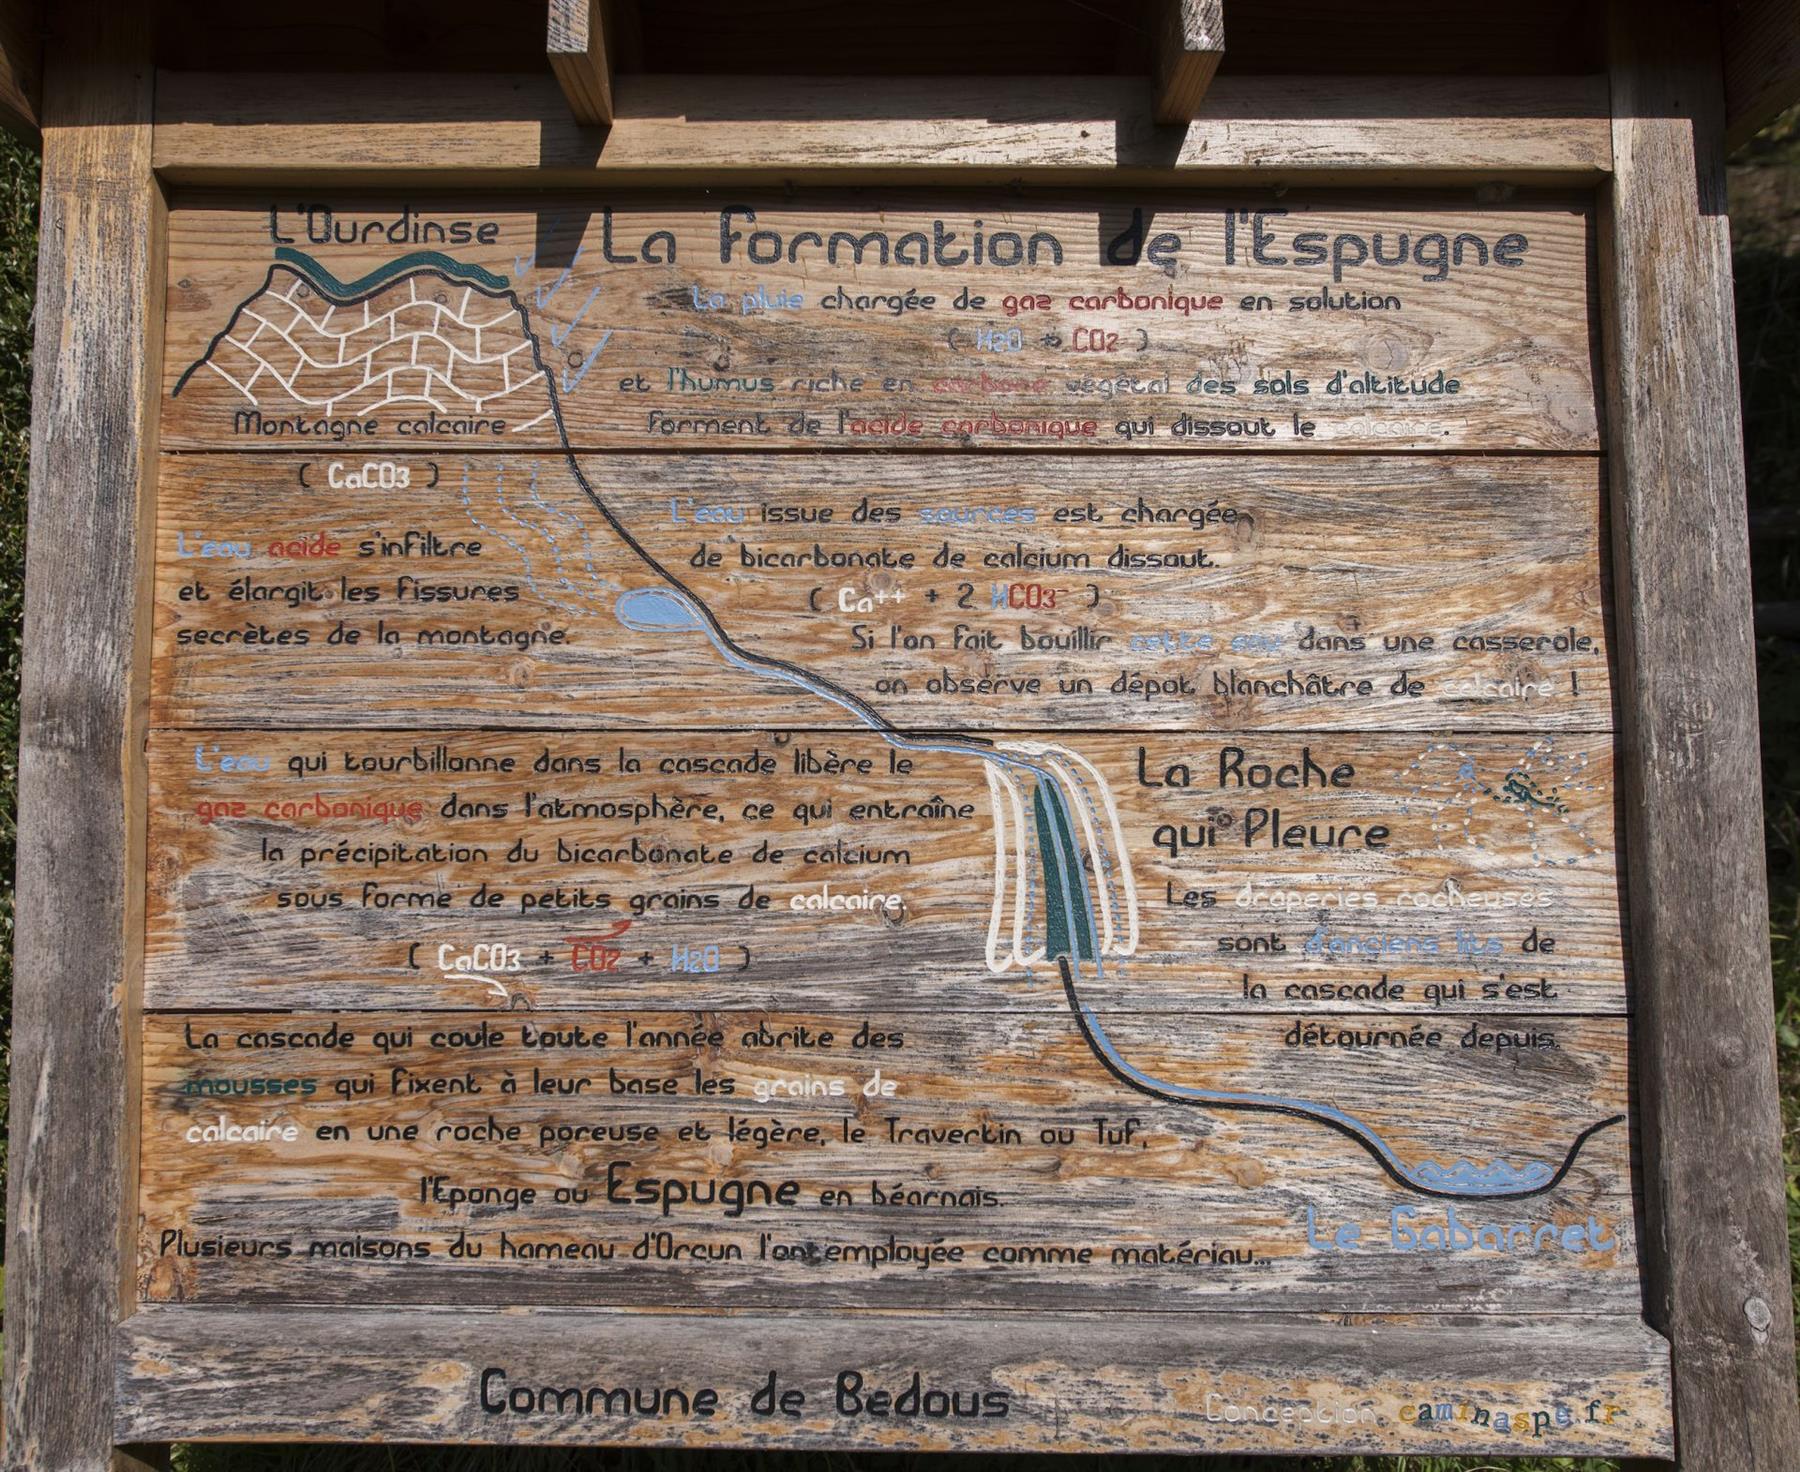 L'Ourdinse
La formation de l'Espugne
La pluie chargée de gaz carbonique en solution
( H2O + CO2 )
et l'humus riche en carbone végétal des sols d'altitude
forment de l'acide carbonique qui dissout le calcaire.
Montagne calcaire
( CaCO3 )
L'eau acide s'infiltre
et élargit les fissures
secrètes de la montagne.
L'eau issue des sources est chargée
de bicarbonate de calcium dissout.
( Ca++ + 2 HCO3- )
Si l'on fait bouillir cette eau dans une casserole,
on observe un dépot blanchâtre de calcaire !
L'eau qui tourbillonne dans la cascade libère le
gaz carbonique dans l'atmosphère, ce qui entraîne
la précipitation du bicarbonate de calcium
sous forme de petits grains de calcaire.
( CaCO3 + CO2 + H2O )
La Roche
qui Pleure
Les draperies rocheuses
sont d'anciens lits de
la cascade qui s'est
détournée depuis.
La cascade qui coule toute l'année abrite des
mousses qui fixent à leur base les grains de
calcaire en une roche poreuse et légère, le Travertin ou Tuf,
l'Eponge ou Espugne en béarnais.
Plusieurs maisons du hameau d'Orcun l'ont employée comme matériau...
Le Gabarret
Commune de Bedous
Conception caminaspe.fr